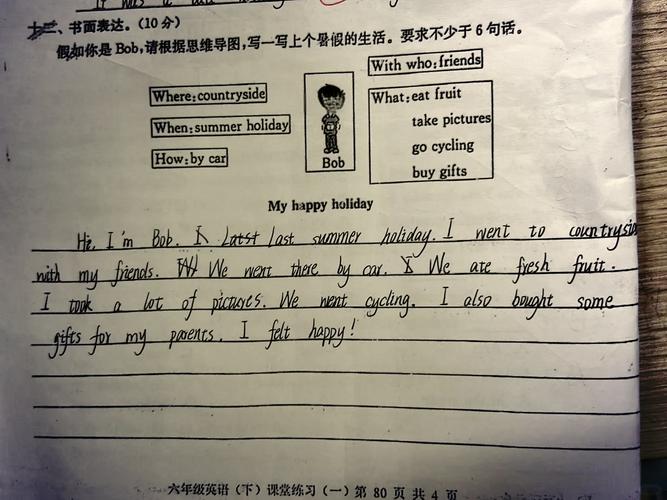 十二、书面表达。(10分)
假如你是 Bob,请根据思维导图,写一写上个暑假的生活。要求不少于6句话。
With who:friends
Where:countryside
What:eat fruit
take pictures
When:summer holiday
go cycling
How:by car
buy gifts
Bob
My happy holiday
Hi, I'm Bob. Last summer holiday. I went to countryside
with my friends. We went there by car. We ate fresh fruit.
I took a lot of pictures. We went cycling. I also bought some
gifts for my parents. I felt happy!
六年级英语(下)课堂练习(一)第 80 页 共 4 页